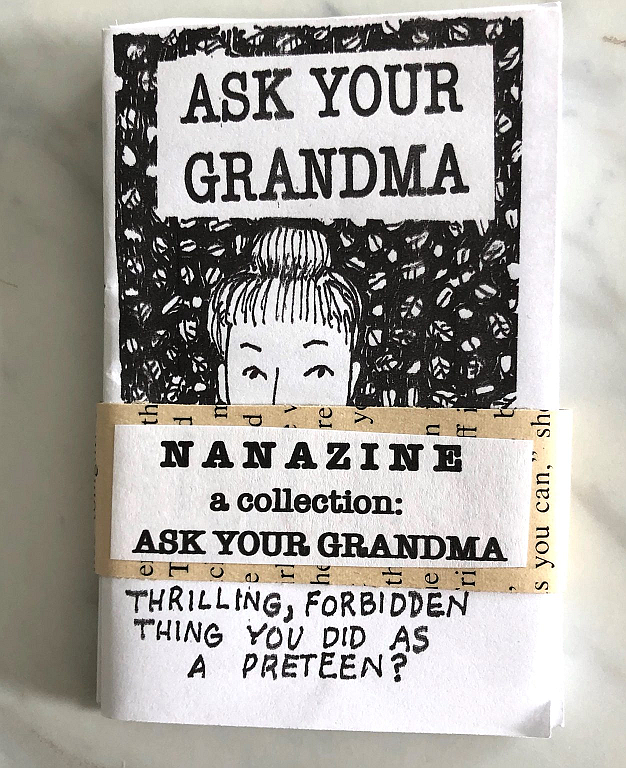 ASK YOUR
GRANDMA
NANAZINE
a collection:
ASK YOUR GRANDMA
s you can," sh
THRILLING, FORBIDDEN
THING YOU DID AS
A PRETEEN?